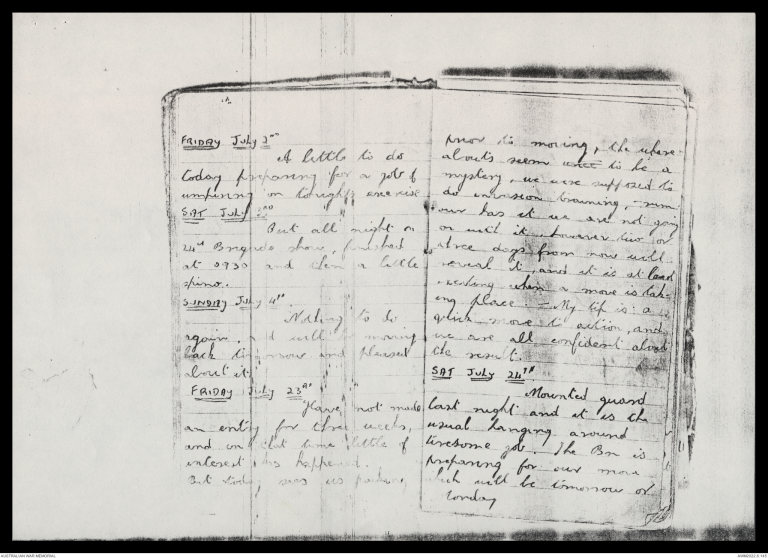 FRIDAY July 2nd
A little to do
today preparing for a job of
umpiring on tonights exercise
SAT July 3rd
But all night on
24th Brigade show, finished
at 0930 and then a little
SUNDAY July 4th
Nothing to do
again. and will be moving
back tomorrow and pleased
about it
FRIDAY July 23rd
Have not made
an entry for three weeks,
and in that time little of
interest has happened.
But today sees us packing
prior to moving, the where-
abouts seem to be a
mystery, we were supposed to
do invasion training, rum-
our has it we are not going
on with it, however two or
three days from now will
reveal it, and it is at least
when a move is tak-
ing place. — My tip is a
quick move to action, and
we are all confident about
the result.
SAT July 24th
Mounted guard
last night and it is the
usual hanging around
tiresome job. The Bn is
preparing for our move
which will be tomorrow or
Monday
AUSTRALIAN WAR MEMORIAL